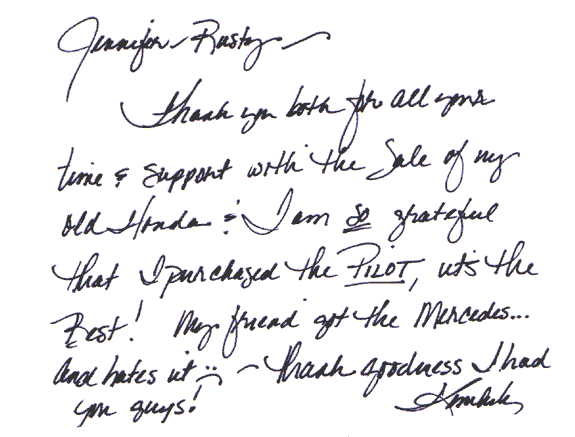 Jennifer - Rusty -
Thank you both for all your
time & support with the sale of my
old Honda & I am so grateful
that I purchased the PILOT, it's the
Best! My friend got the Mercedes...
and hates it :( - thank goodness I had
you guys!